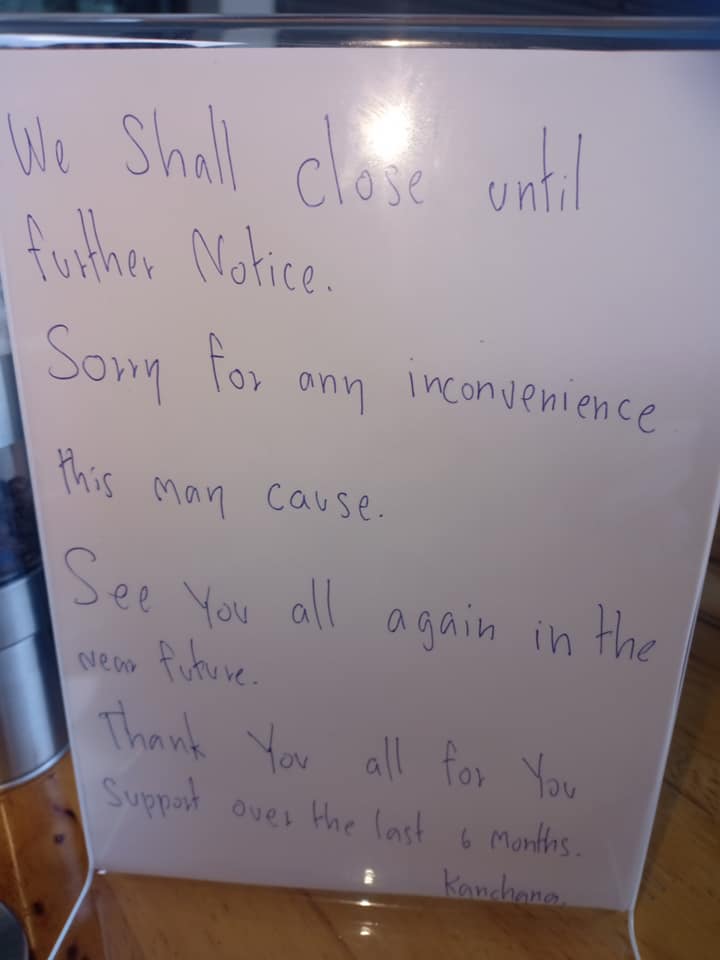 We Shall close until
further Notice.
Sorry for any inconvenience
this may cause.
See You all again in the
near future.
Thank You all for You
Support over the last 6 Months.
Kanchana.